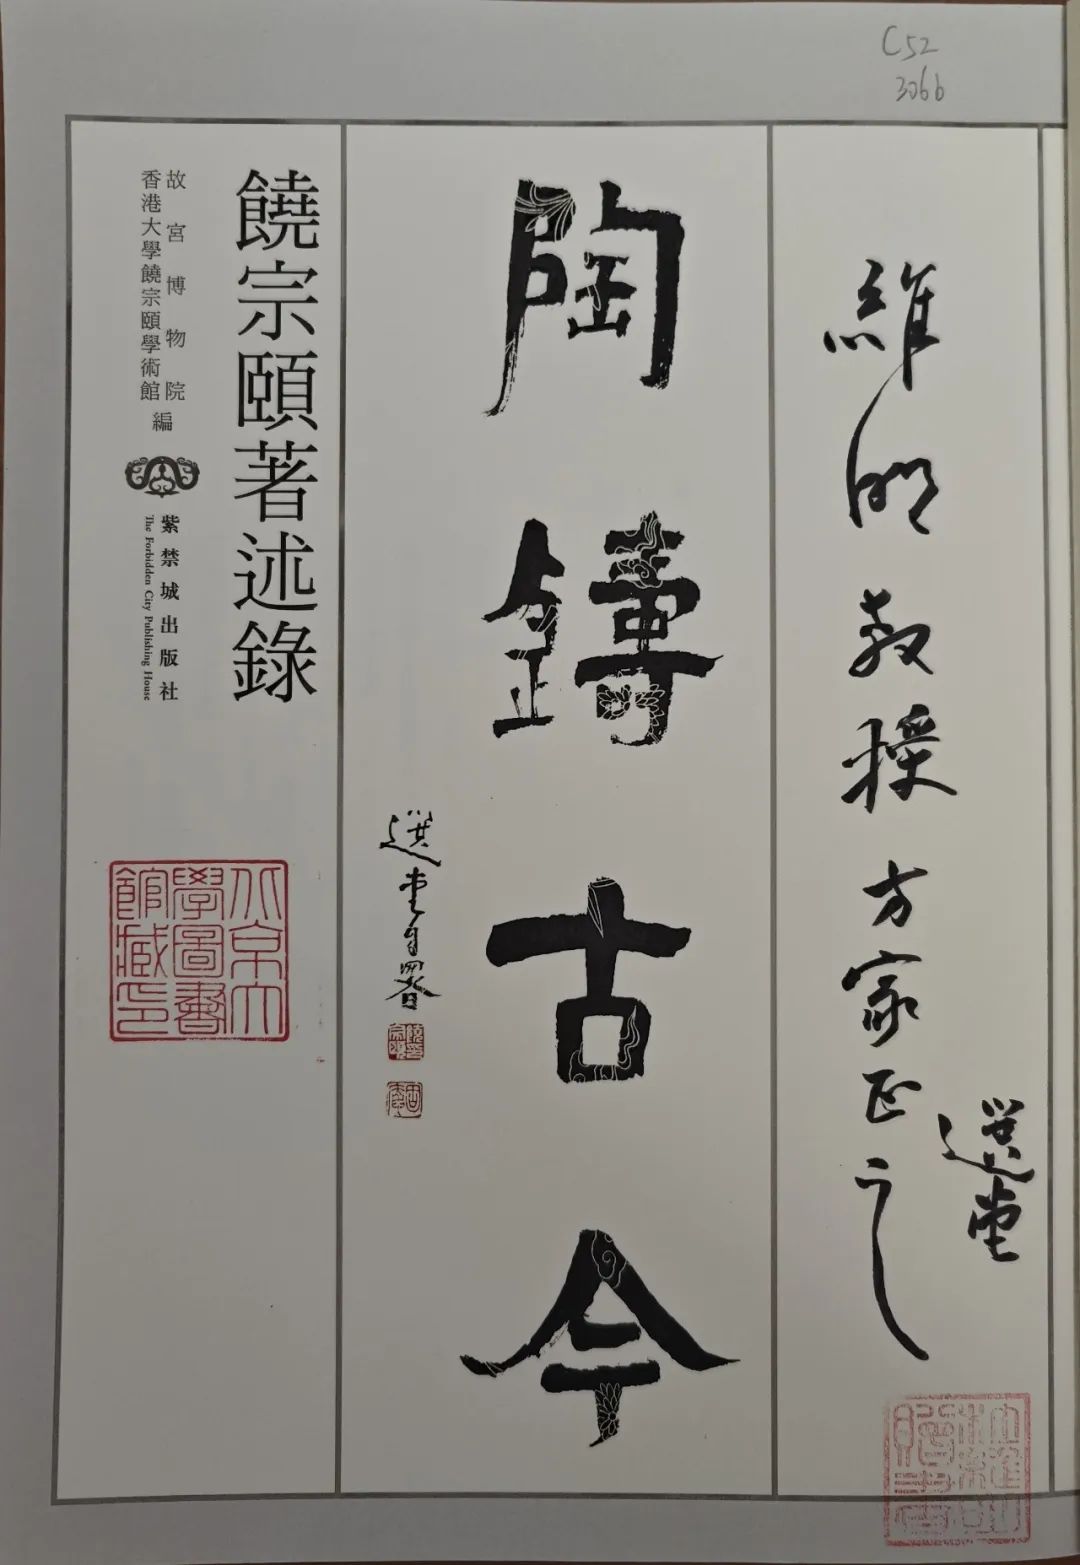 C52
3066
維明教授方家正之
選堂
陶鑄古今
選堂自署
饒宗頤著述錄
故宮博物院
香港大學饒宗頤學術館
編
紫禁城出版社
The Forbidden City Publishing House
北京大
學圖書
館藏印